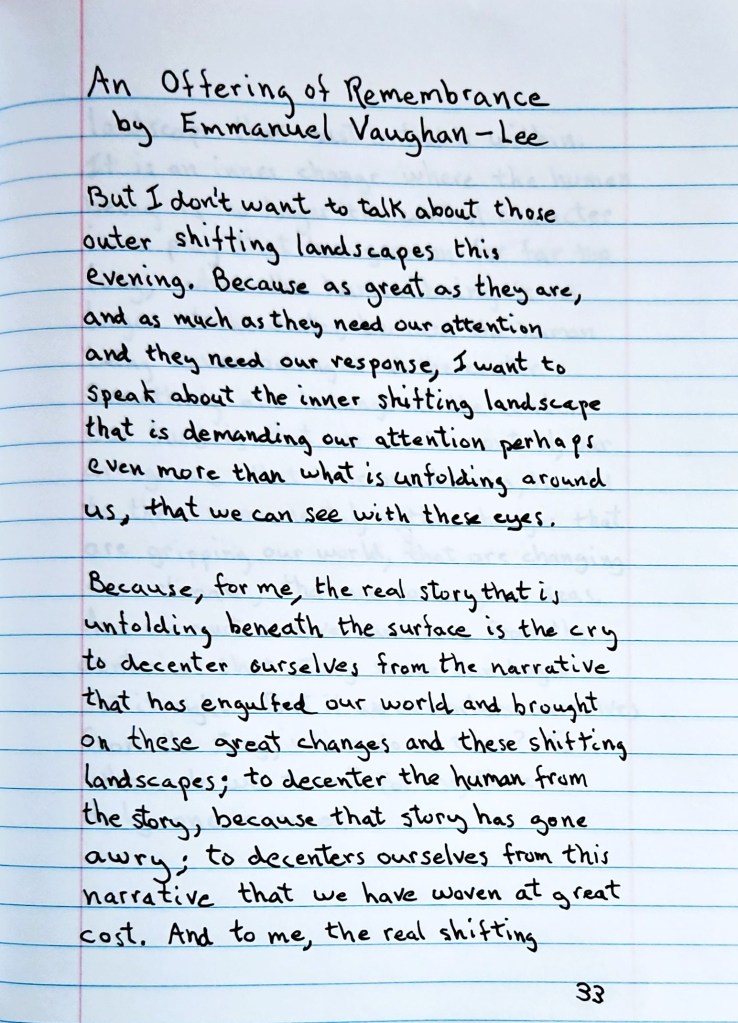 An Offering of Remembrance
by Emmanuel Vaughan-Lee
But I don't want to talk about those
outer shifting landscapes this
evening. Because as great as they are,
and as much as they need our attention
and they need our response, I want to
speak about the inner shifting landscape
that is demanding our attention perhaps
even more than what is unfolding around
us, that we can see with these eyes.
Because, for me, the real story that is
unfolding beneath the surface is the cry
to decenter ourselves from the narrative
that has engulfed our world and brought
on these great changes and these shifting
landscapes; to decenter the human from
the story, because that story has gone
awry; to decenters ourselves from this
narrative that we have woven at great
cost. And to me, the real shifting
33